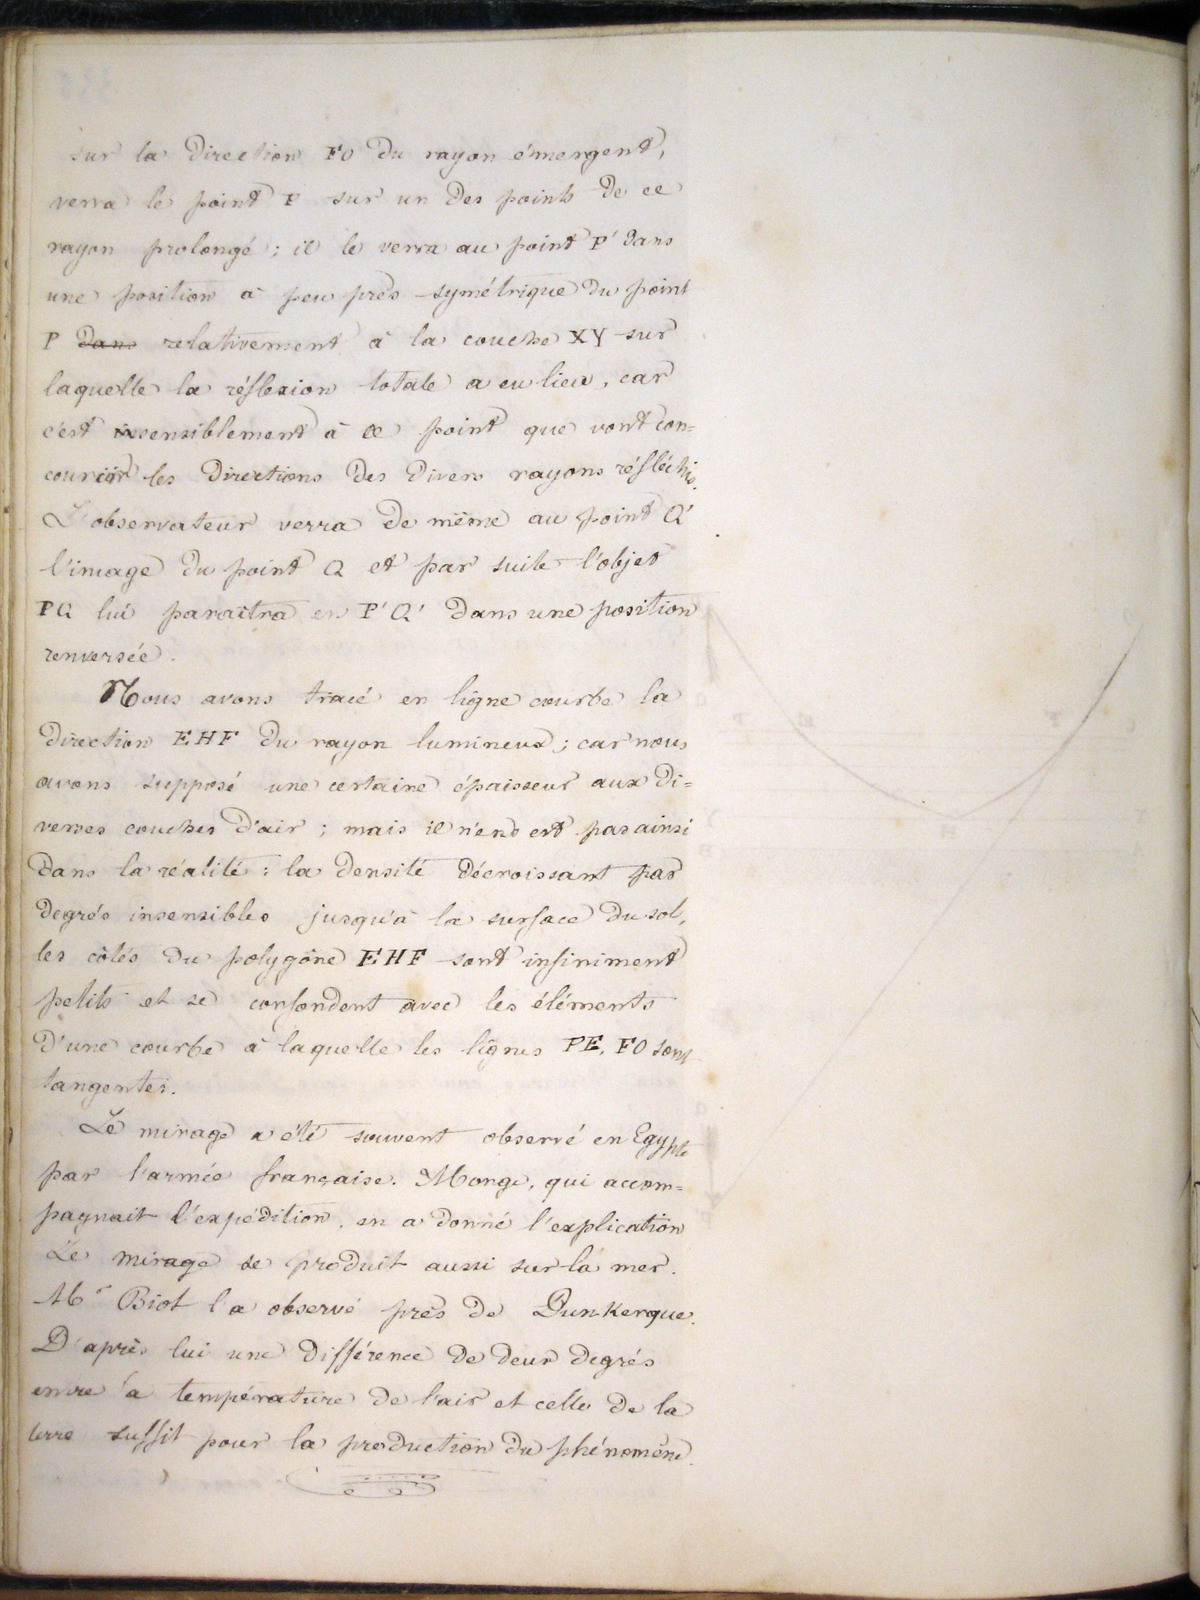 sur la direction FO du rayon émergent,
verra le point P sur un des points de ce
rayon prolongé ; il le verra au point P' dans
une position à peu près symétrique du point
P dans relativement à la couche XY sur
laquelle la réflexion totale a eu lieu, car
c'est insensiblement à ce point que vont con=
courir les directions des divers rayons réfléchis.
L'observateur verra de même au point Q'
l'image du point Q et par suite l'objet
PQ lui paraîtra en P'Q' dans une position
renversée.
Nous avons tracé en ligne courbe la
direction EHF du rayon lumineux ; car nous
avons supposé une certaine épaisseur aux di=
verses couches d'air ; mais il n'en est pas ainsi
dans la réalité : la densité décroissant par
degrés insensibles jusqu'à la surface du sol,
les côtés du polygône EHF sont infiniment
petits et se confondent avec les éléments
d'une courbe à laquelle les lignes PE, FO sont
tangentes.
Le mirage a été souvent observé en Egypte
par l'armée française. Monge, qui accom=
pagnait l'expédition, en a donné l'explication
Le mirage se produit aussi sur la mer.
Mr Biot l'a observé près de Dunkerque.
D'après lui une différence de deux degrés
entre la température de l'air et celle de la
terre suffit pour la production du phénomène.